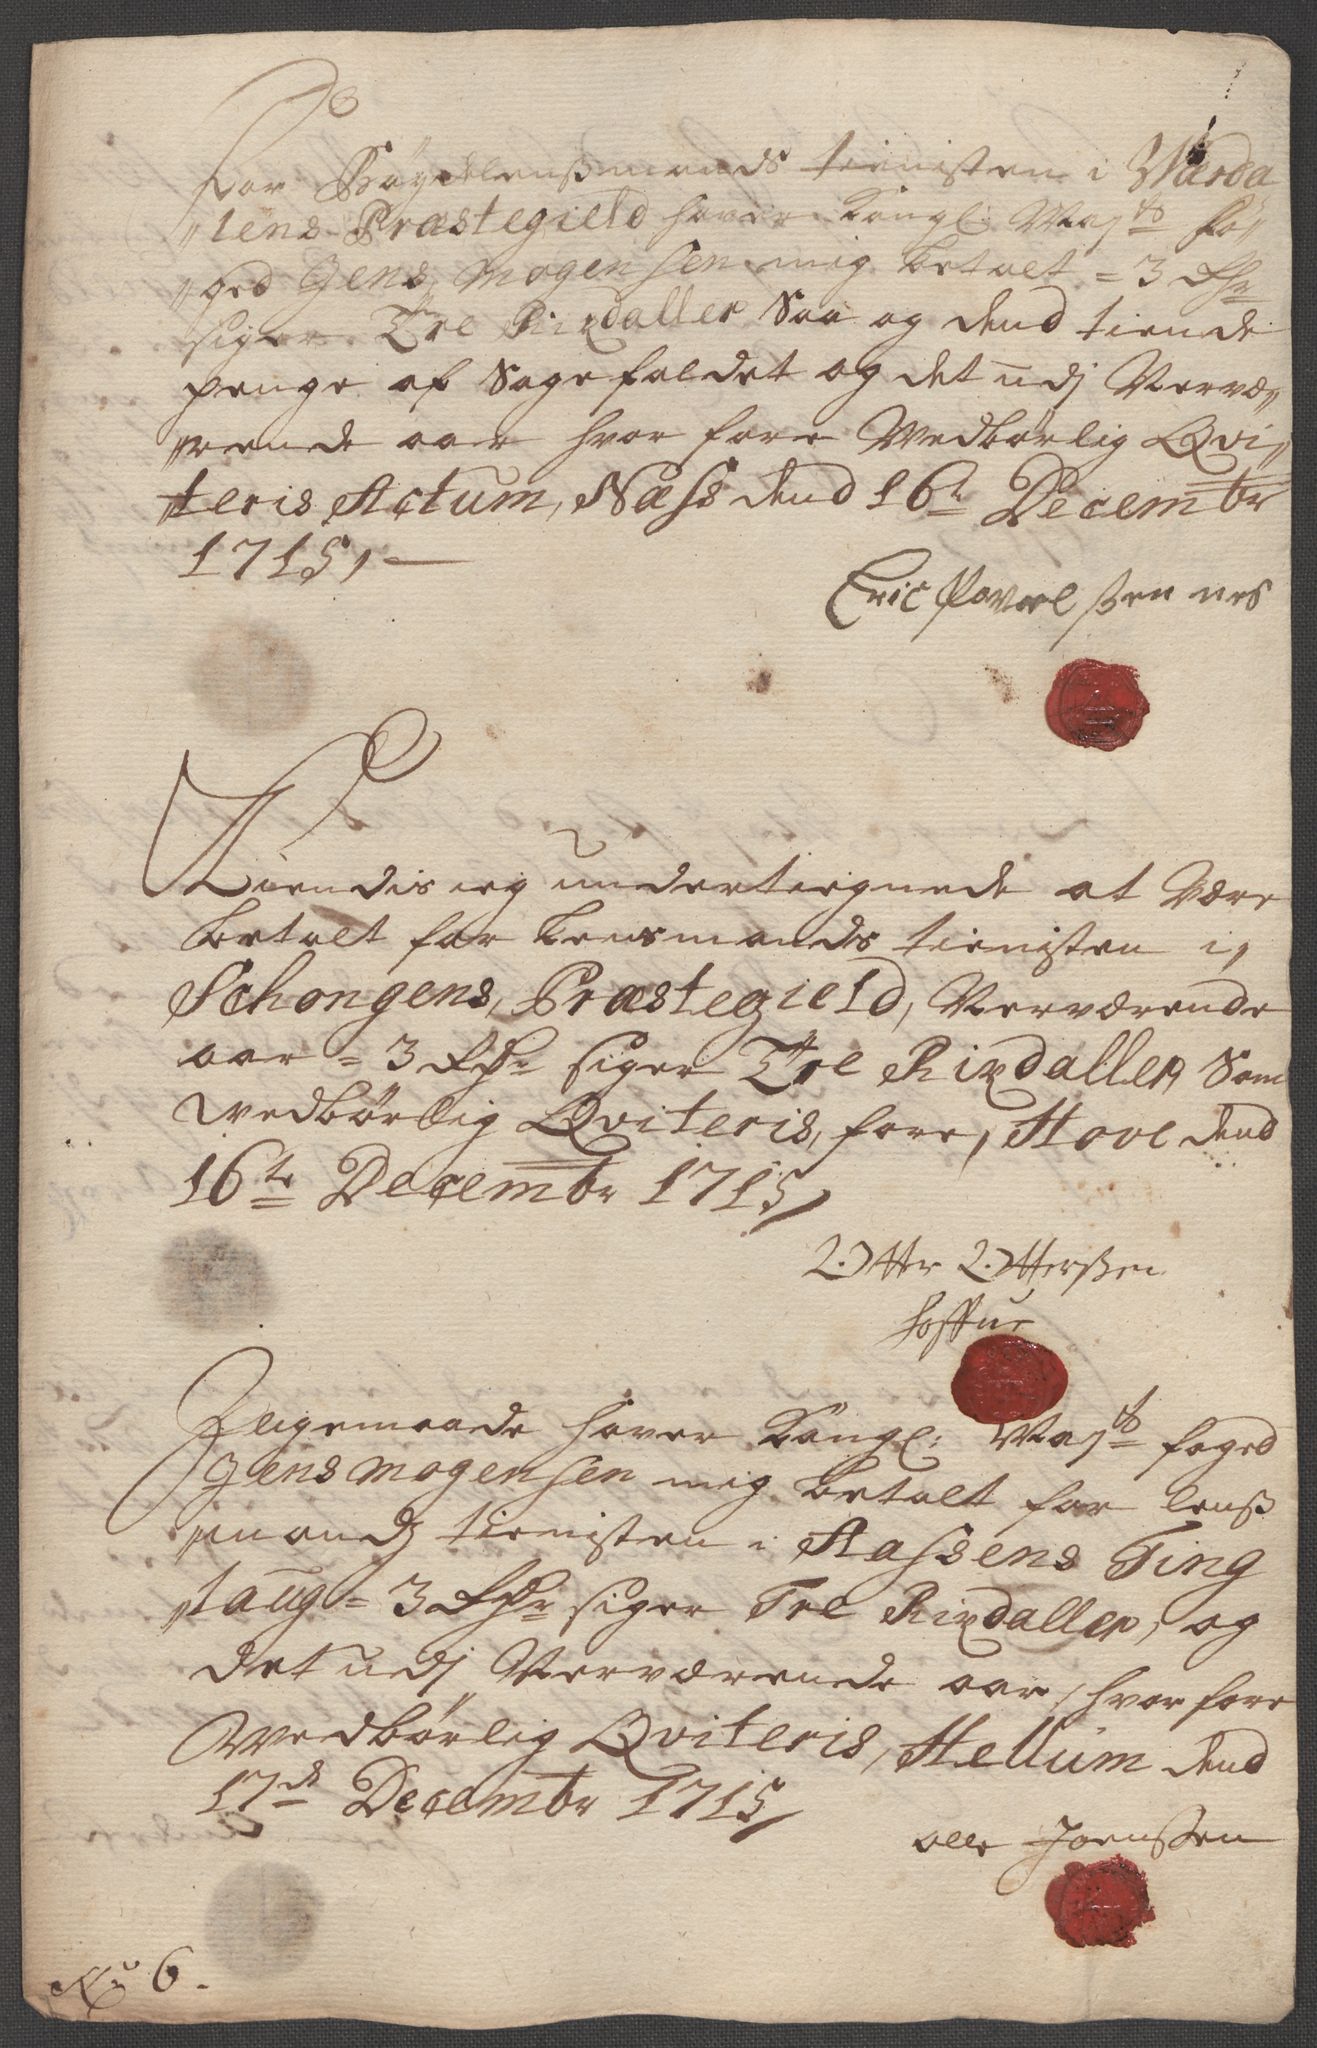 For Bøygdelensmands tienisten i Wærda
lens Præstegield hafver Kongl: Mayts Fo,,
,,ged Jens Mogensen mig betalt = 3 Rdr
siger Tre Rixdaller Saa og dend tiende
penge af Sagefaldet og det udj Nervæ,,
,,rende aar hvor fore Wedbørlig Qvi,,
teris Actum, Næss dend 16te Decembr
1715, —
Eric Povelssen nes
Kiendis ieg undertegnede at være
betalt for Lensmands tienisten i,
Schongens, Præstegield, Nerværende
aar = 3 Rdr siger Tre Rixdaller Som
wedbørlig Qviteris, fore, Hove dend
16te Decembr 1715/
Otter Otterssen
hoffue
Ligemaade hafver Kongl: Mayts foged
Jens Mogensen mig betalt for lens
,,mands tienisten i Aassens Ting
,,laug = 3 Rdr siger Tre Rixdaller, og
det udj Nerværende aar, hvor fore
Wedbørlig Qviteris, Hellum dend
17de Decembr 1715/
olle Joenssen
No 6.